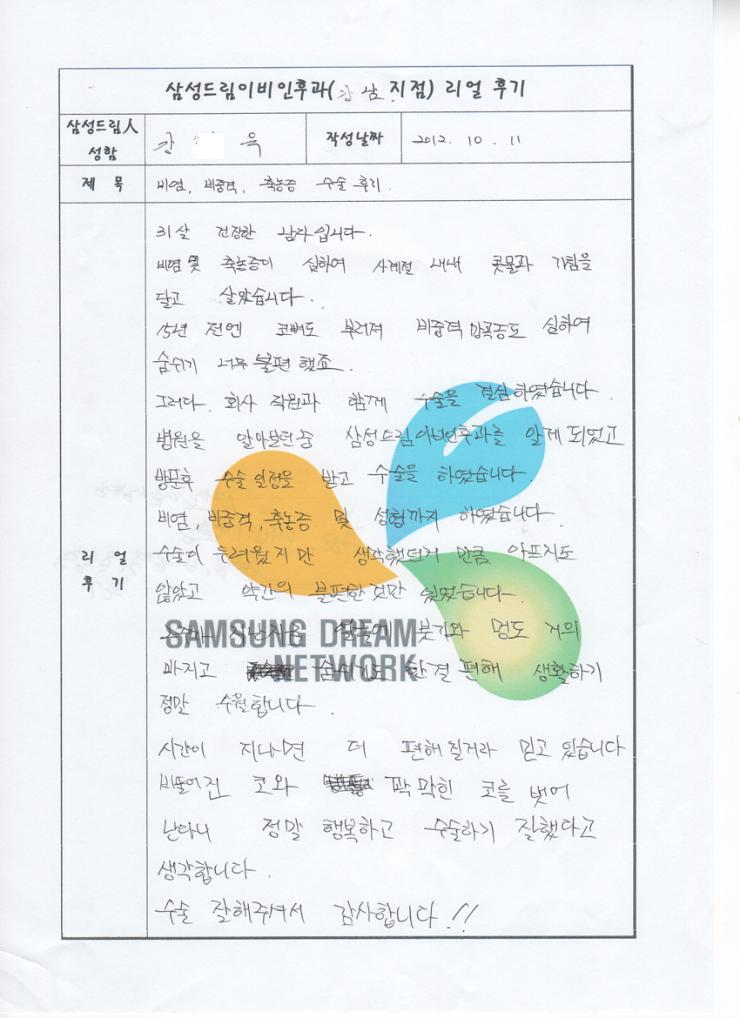 삼성드림이비인후과(강남 지점) 리얼 후기
삼성드림人
성함
강 욱
작성날짜
2012. 10. 11
제 목
비염, 비중격, 축농증 수술 후기.
리 얼
후 기
31살 건장한 남자입니다.
비염 및 축농증이 심하여 사계절 내내 콧물과 기침을
달고 살았습니다.
15년 전엔 코뼈도 부러져 비중격 만곡증도 심하여
숨쉬기 너무 불편 했죠.
그러다. 회사 직원과 함께 수술을 결심하였습니다.
병원을 알아보던중 삼성드림이비인후과를 알게 되었고
방문후 수술 일정을 받고 수술을 하였습니다.
비염, 비중격, 축농증 및 성형까지 하였습니다.
수술이 두려웠지만 생각했던거 만큼 아프지도
않았고 약간의 불편한것만 있었습니다.
지금은 붓기와 멍도 거의
빠지고 숨쉬기도 한결 편해 생활하기
정말 수월합니다.
시간이 지나면 더 편해질거라 믿고 있습니다
비뚤어진 코와 꽉 막힌 코를 벗어
난다니 정말 행복하고 수술하기 잘했다고
생각합니다.
수술 잘해주셔서 감사합니다!!
SAMSUNG DREAM
NETWORK